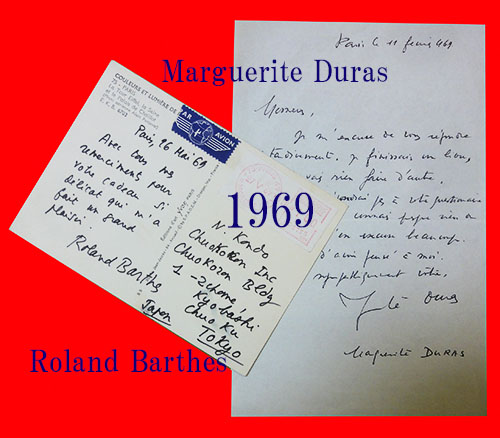 Marguerite Duras
1969
Roland Barthes
COULEURS ET LUMIÈRE DE
75 - PARIS
La Tour Eiffel, la Seine
et le Palais de Chaillot
PAR AVION
Paris, 16 Mai 69
Avec tous mes
remerciments pour
votre cadeau si
délicat qui m'a
fait un grand
plaisir.
Roland Barthes
N. Kondo
ChuoKoron Inc
ChuoKoron Bldg
1 - 2chome
Kyobashi
Chuo Ku
TOKYO
Japon
Paris le 11 février 1969
Monsieur,
Je m'excuse de vous répondre
tardivement, je finissais un livre,
rien faire d'autre.
à votre questionnaire
rien
m'en excuse beaucoup.
d'avoir pensé à moi.
sympathiquement vôtre,
Duras
Marguerite DURAS